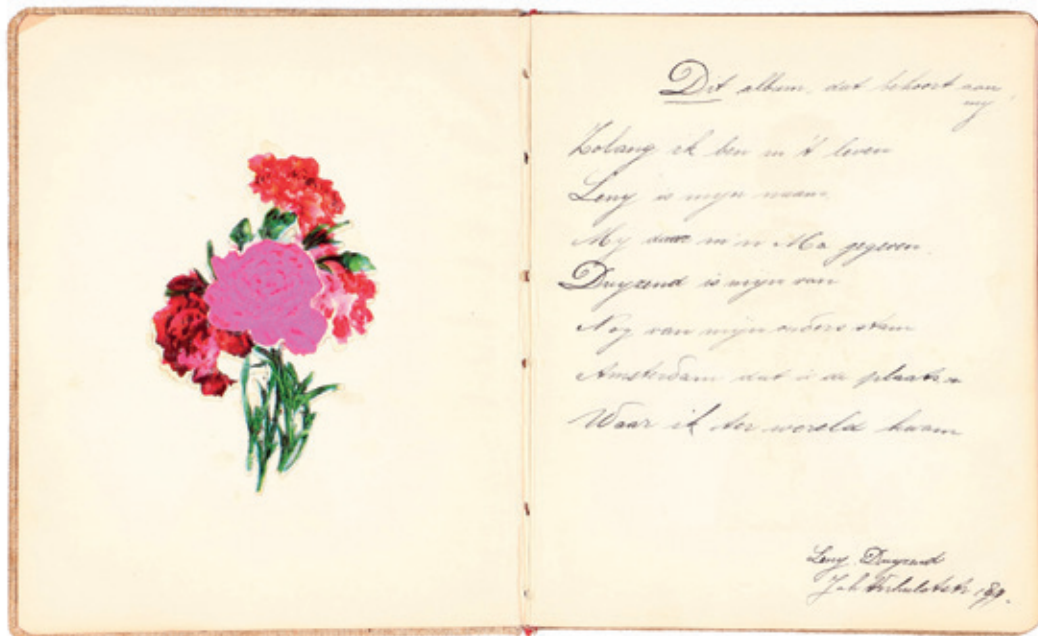 Dit album, dat behoort aan
my!
Zolang ik ben in 't leven
Leny is mijn naam
My door m'n Ma gegeven.
Duyzend is mijn van
Nog van mijn ouders stam
Amsterdam dat is de plaats
Waar ik ter wereld kwam
Leny Duyzend
Joh Verhulststr